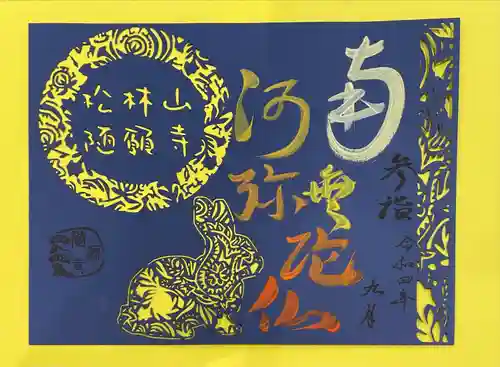 参詣
令和四年
九月
南無
阿弥
陀仏
松林山
随願寺